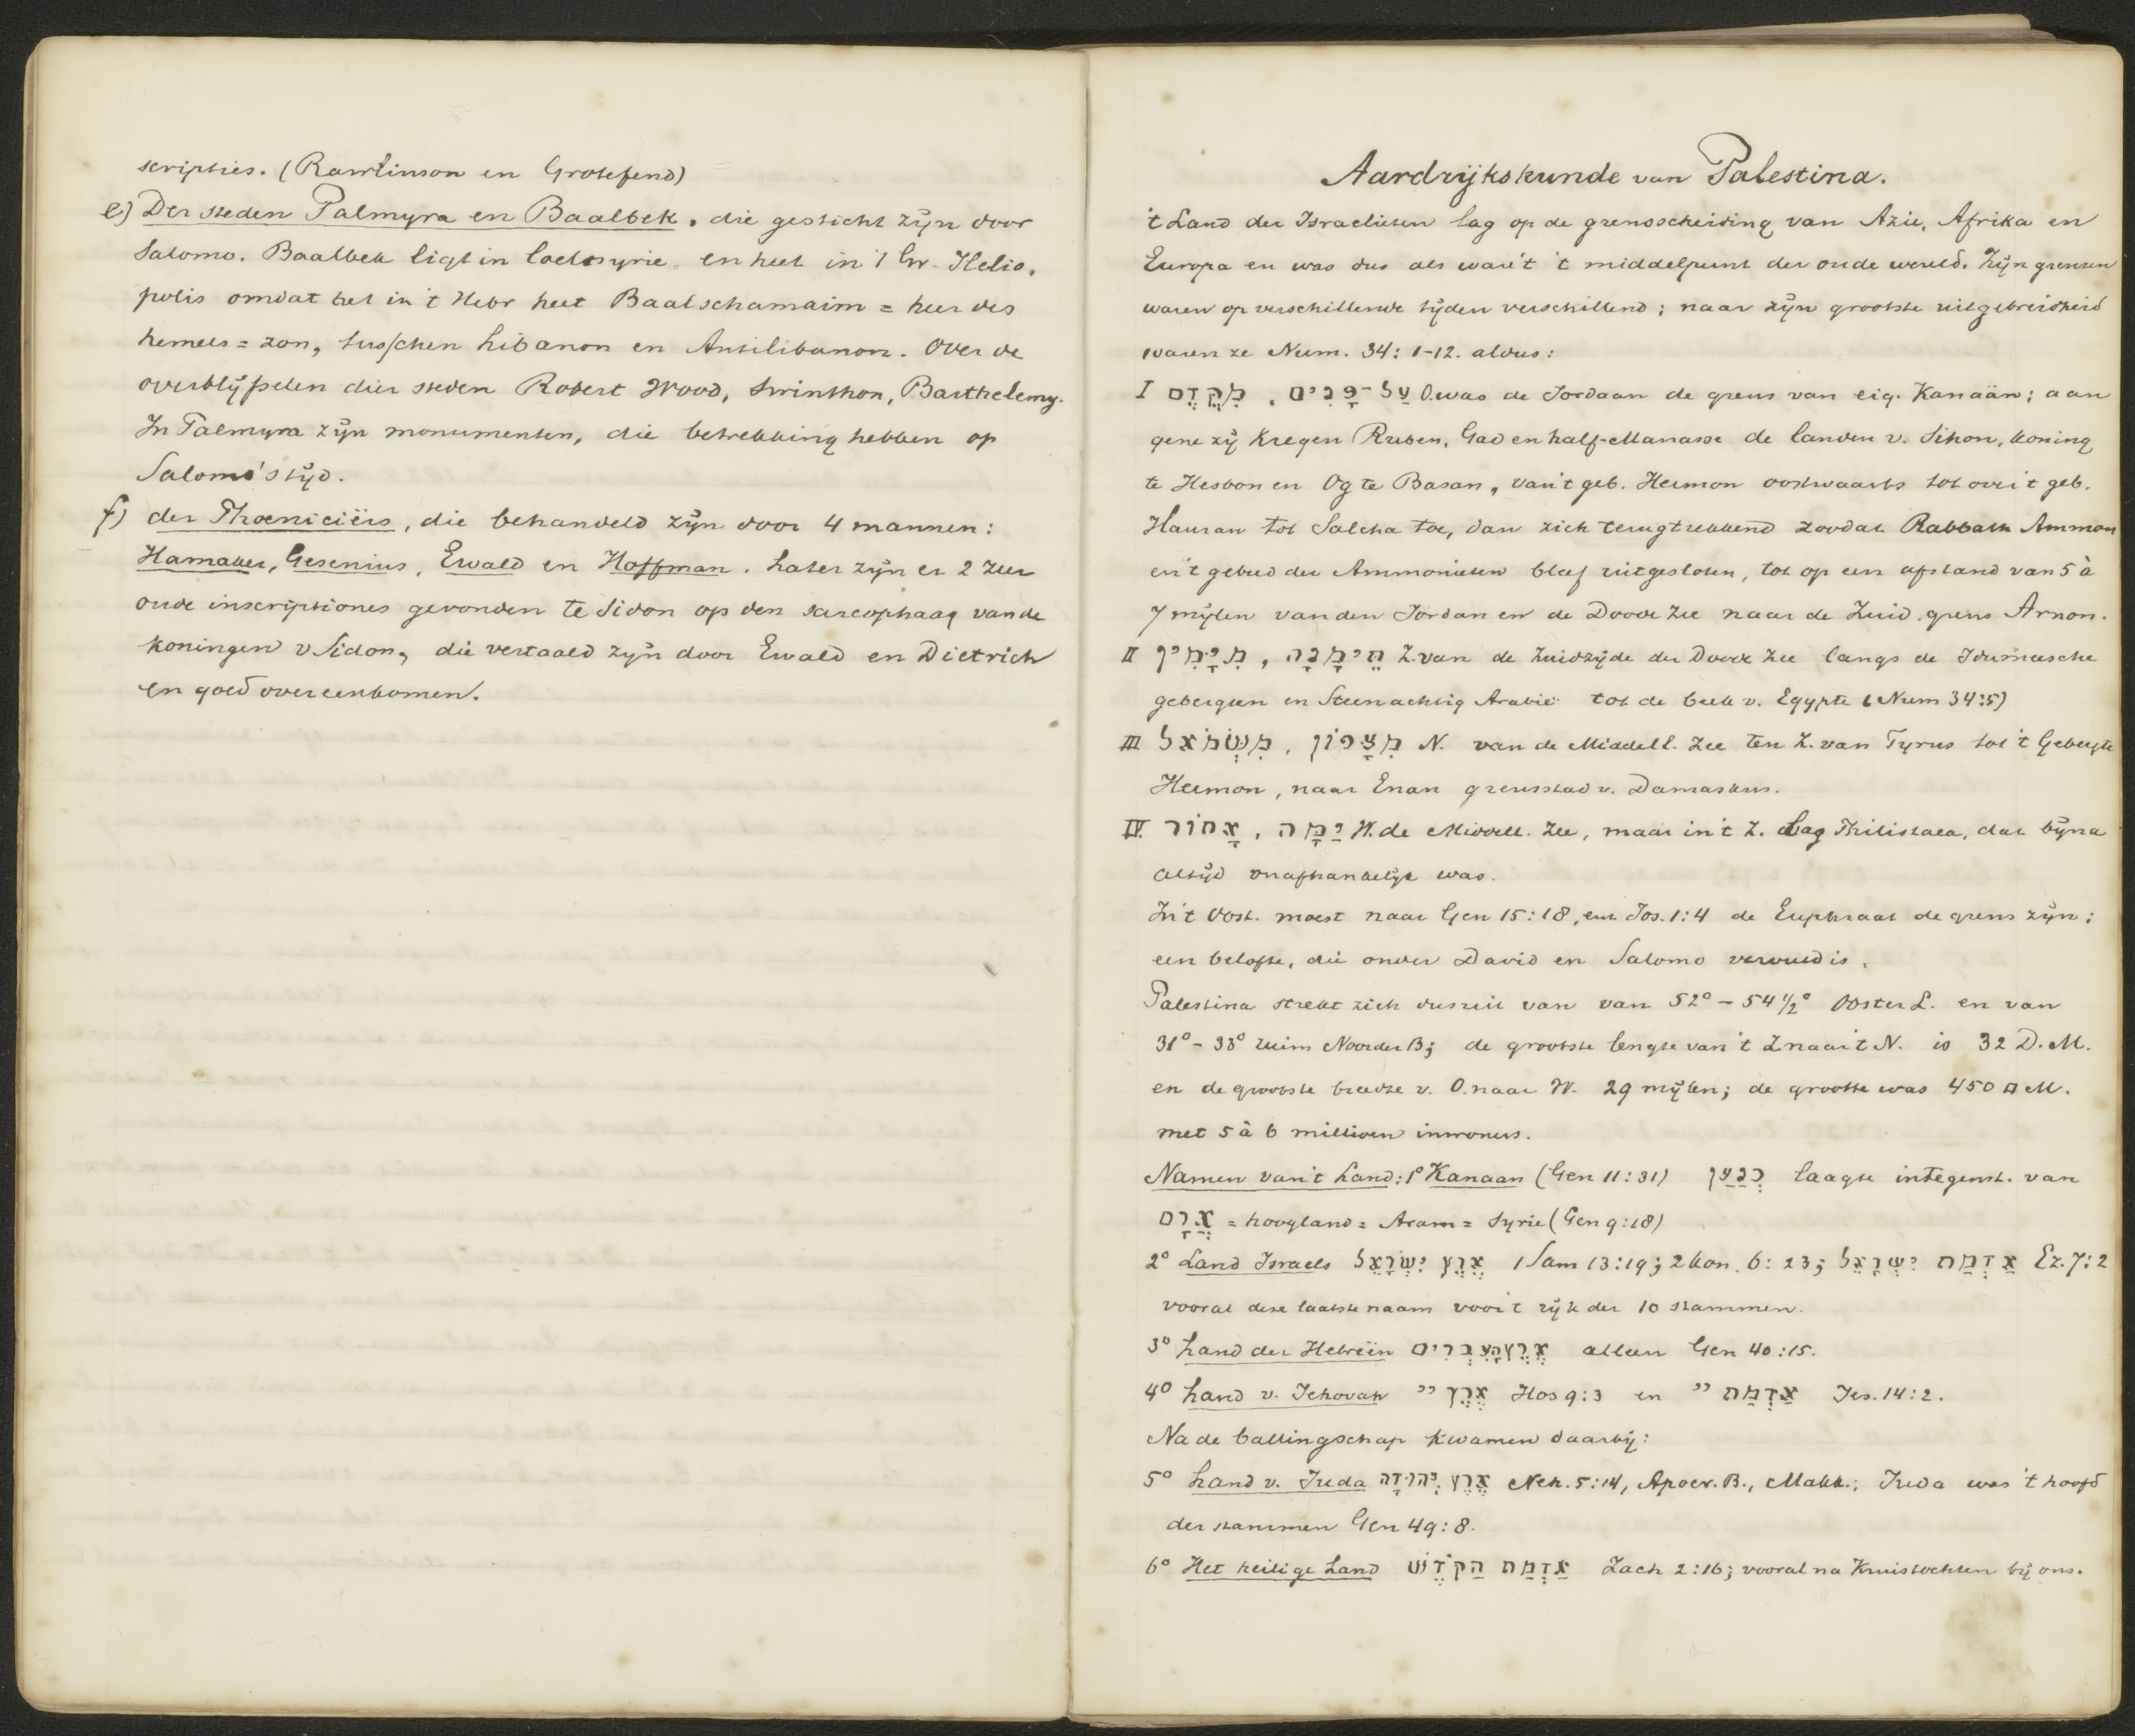 scripties. (Rawlinson en Grotefend)
e) Der steden Palmyra en Baalbek, die gesticht zijn door
Salomo. Baalbek ligt in Coelesyrie en heet in 't Gr. Helio,
polis omdat het in 't Hebr heet Baalschamaim = heer des
hemels = zon, tusschen Libanon en Antilibanon. Over de
overblijfselen dier steden Robert Wood, Swinthon, Barthelemy.
In Palmyra zijn monumenten, die betrekking hebben op
Salomo's tijd.
f) der Phoeniciërs, die behandeld zijn door 4 mannen:
Hamaker, Gesenius, Ewald en Hoffman. Later zijn er 2 zeer
oude inscriptiones gevonden te Sidon op den sarcophaag van de
koningen v Sidon, die vertaald zijn door Ewald en Dietrich
en goed overeenkomen.
Aardrijkskunde van Palestina.
't Land der Israelieten lag op de grensscheiding van Azie, Afrika en
Europa en was dus als ware 't 't middelpunt der oude wereld. Zijn grenzen
waren op verschillende tijden verschillend; naar zijn grootste uitgebreidheid
waren ze Num. 34: 1-12. aldus:
I עַל־פָּנִים , מִקֶּדֶם O.was de Jordaan de grens van eig. Kanaän; aan
gene zij kregen Ruben, Gad en half-Manasse de landen v. Sihon, koning
te Hesbon en Og te Basan, van 't geb. Hermon oostwaarts tot over 't geb.
Hauran tot Salcha toe, dan zich terugtrekkend zoodat Rabbath Ammon
en 't gebied der Ammonieten bleef uitgesloten, tot op een afstand van 5 à
7 mijlen van den Jordan en de Doode Zee naar de Zuid.grens Arnon.
II תֵּימָנָה , מִיָּמִין Z.van de Zuidzijde der Doode Zee langs de Idumeesche
gebergten en Steenachtig Arabië tot de beek v. Egypte (Num 34:5)
III מִצָּפוֹן , מִשְּׂמֹאל N. van de Middell. Zee ten Z. van Tyrus tot 't Gebergte
Hermon, naar Enan grensstad v. Damaskus.
IV. יַמָּה , אָחוֹר W. de Middell. Zee, maar in 't Z. lag Philistaea, dat bijna
altijd onafhankelijk was.
In 't Oost. moest naar Gen 15:18, en Jos. 1:4 de Euphraat de grens zijn;
een belofte, die onder David en Salomo vervuld is.
Palestina strekt zich dus uit van van 52° – 54 1/2° Ooster L. en van
31° – 33° ruim Noorder B; de grootste lengte van 't Z naar 't N. is 32 D. M.
en de grootste breedte v. O. naar W. 29 mijlen; de grootte was 450 □ M.
met 5 à 6 millioen inwoners.
Namen van 't Land: 1° Kanaan (Gen 11:31) כְּנַעַן laagte in tegenst. van
אֲרָם = hoogland = Aram = Syrie (Gen 9:18)
2° Land Israels אֶרֶץ יִשְׂרָאֵל 1 Sam 13:19; 2 Kon. 6: 23; אַדְמַת יִשְׂרָאֵל Ez. 7:2
vooral deze laatste naam voor 't rijk der 10 stammen.
3° Land der Hebreën אֶרֶץ הָעִבְרִים alleen Gen 40:15.
4° Land v. Jehovah אֶרֶץ יי Hos 9:3 en אַדְמַת יי Jes. 14:2.
Na de ballingschap kwamen daarbij:
5° Land v. Juda אֶרֶץ יְהוּדָה Neh. 5:14, Apocr. B., Makk.; Juda was 't hoofd
der stammen Gen 49:8.
6° Het heilige Land אַדְמַת הַקֹּדֶשׁ Zach 2:16; vooral na Kruistochten bij ons.